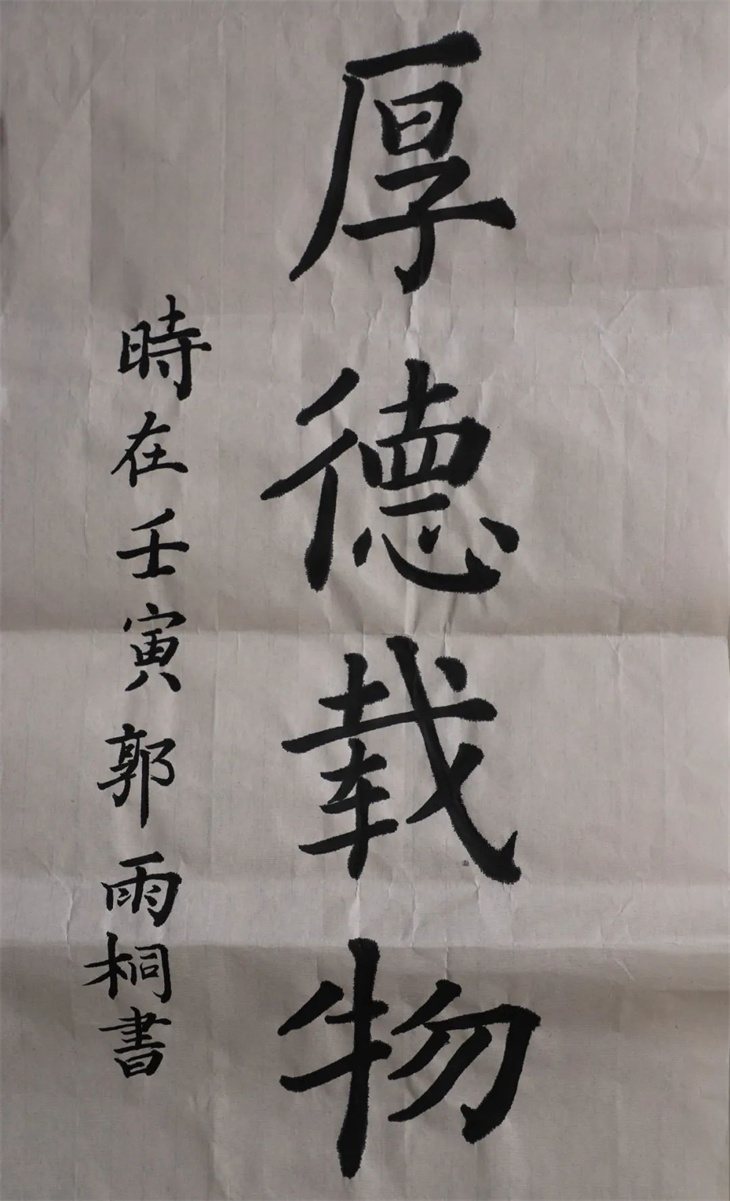 厚德载物
時在壬寅郭雨桐書